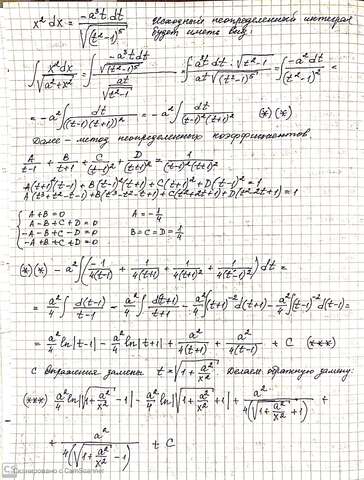 x² dx = -a³t dt / √((t²-1)⁵) Исходный неопределенный интеграл
будет иметь вид:
∫ x² dx / √(a²+x²) = ∫ (-a³t dt / √((t²-1)⁵)) / (at / √(t²-1)) = ∫ a³t dt · √(t²-1) / (at √((t²-1)⁵)) = ∫ -a² dt / (t²-1)² =
= -a² ∫ dt / ((t-1)(t+1))² = -a² ∫ dt / ((t-1)²(t+1)²) (*)(*)
Далее - метод неопределенных коэффициентов
A/(t-1) + B/(t+1) + C/(t-1)² + D/(t+1)² = 1/((t-1)²(t+1)²)
A(t+1)²(t-1) + B(t-1)²(t+1) + C(t+1)² + D(t-1)² = 1
A(t³+t²-t-1) + B(t³-t²-t+1) + C(t²+2t+1) + D(t²-2t+1) = 1
{ A+B=0 A = -1/4
A-B+C+D=0
-A-B+C-D=0 B=C=D=1/4
-A+B+C+D=0
(*)(*) -a² ∫ (-1/(4(t-1)) + 1/(4(t+1)) + 1/(4(t+1)²) + 1/(4(t-1)²)) dt =
= a²/4 ∫ d(t-1)/(t-1) - a²/4 ∫ d(t+1)/(t+1) - a²/4 ∫ (t+1)⁻² d(t+1) - a²/4 ∫ (t-1)⁻² d(t-1) =
= a²/4 ln|t-1| - a²/4 ln|t+1| + a²/(4(t+1)) + a²/(4(t-1)) + C (***)
t = √(1+a²/x²). Делаем обратную замену:
(***) a²/4 ln|√(1+a²/x²) - 1| - a²/4 ln|√(1+a²/x²) + 1| + a²/(4(√(1+a²/x²) + 1)) +
+ a²/(4(√(1+a²/x²) - 1)) + C
CS Сканировано с CamScanner